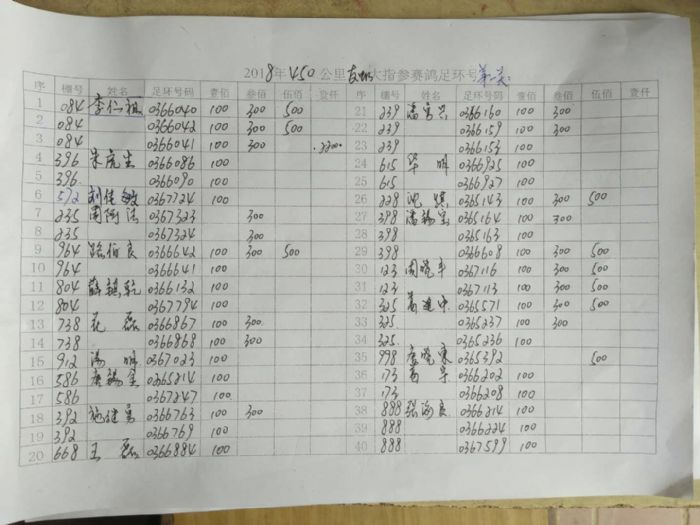 2018年450公里友好大指参赛鸽足环号
序 棚号 姓名 足环号码 壹佰 叁佰 伍佰 壹仟
1 084 李仁祖 0366040 100 300 500
2 084 0366042 100 300 500
3 084 0366041 100 300
4 396 朱虎生 0366086 100
5 396 0366090 100
6 592 刘佳敏 0367724 100
7 235 周阿法 0367323 300
8 235 0367324 300
9 964 路伯良 0366642 100 300 500
10 964 0366641 100
11 804 薛镇乾 0366132 100
12 804 0367794 100
13 738 花磊 0366867 100 300
14 738 0366868 100 300
15 912 汤明 0367023 100
16 586 唐锡金 0265214 100
17 586 0367247 100
18 392 0366763 100 300
19 392 0366769 100
20 668 王磊 0366884 100
序 棚号 姓名 足环号码 壹佰 叁佰 伍佰 壹仟
21 239 潘富兴 0366160 100 300
22 239 0366159 100 300
23 239 0366153 100
24 615 华明 0366925 100
25 615 0366927 100
26 228 沈 0365143 100 300 500
27 398 潘锡宝 0365164 100 300
28 398 0365163 100
29 398 0366608 100 300 500
30 123 周晓丰 0367116 100 300 500
31 123 0367113 100 300 500
32 325 葛建中 0365571 100 300 500
33 325 0365237 100 300
34 325 0365236 100
35 998 唐晓东 0365392 500
36 173 0366202 100
37 173 0366208 100
38 888 张海良 0366214 100
39 888 0366224 100
40 888 0367599 100